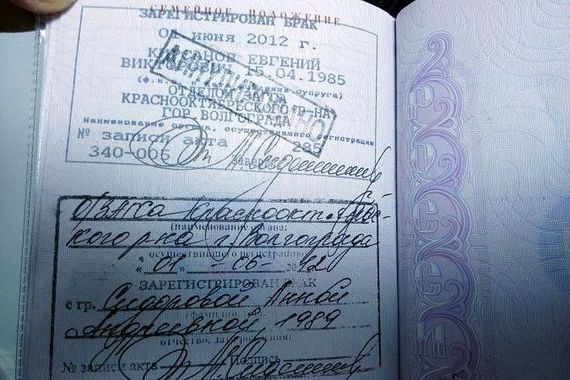 СЕМЕЙНОЕ ПОЛОЖЕНИЕ
ЗАРЕГИСТРИРОВАН БРАК
01 июня 2012 г.
ЕВГЕНИЙ
15.04.1985
ОТДЕЛОМ ЗАГСА
КРАСНООКТЯБРЬСКОГО Р-НА
ГОР. ВОЛГОГРАДА
наименование органа, осуществившего регистрацию
№ записи акта 285
340-006
О/ЗАГСа Краснооктябрьс-
(наименование органа,
кого р-на г. Волгограда
осуществившего регистрацию)
"01" 06 2012
ЗАРЕГИСТРИРОВАН БРАК
с гр. Сидоровой Анной
Андреевной, 1989
отчество, дата рождения
№ записи акта Подпись